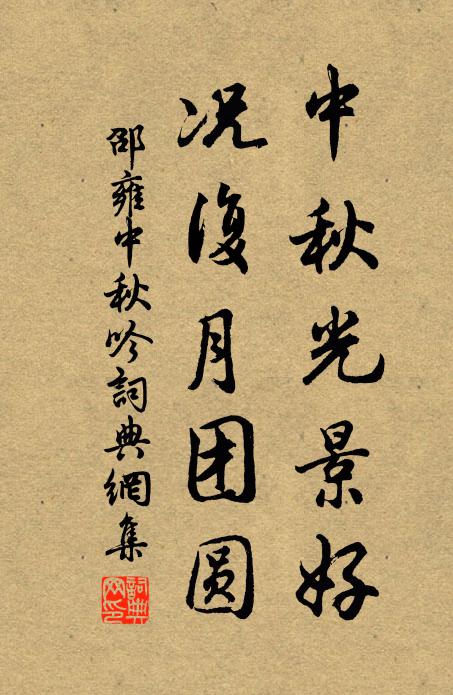 中秋光景好
况復月团圆
邵雍中秋吟詞典網集
詞典網印